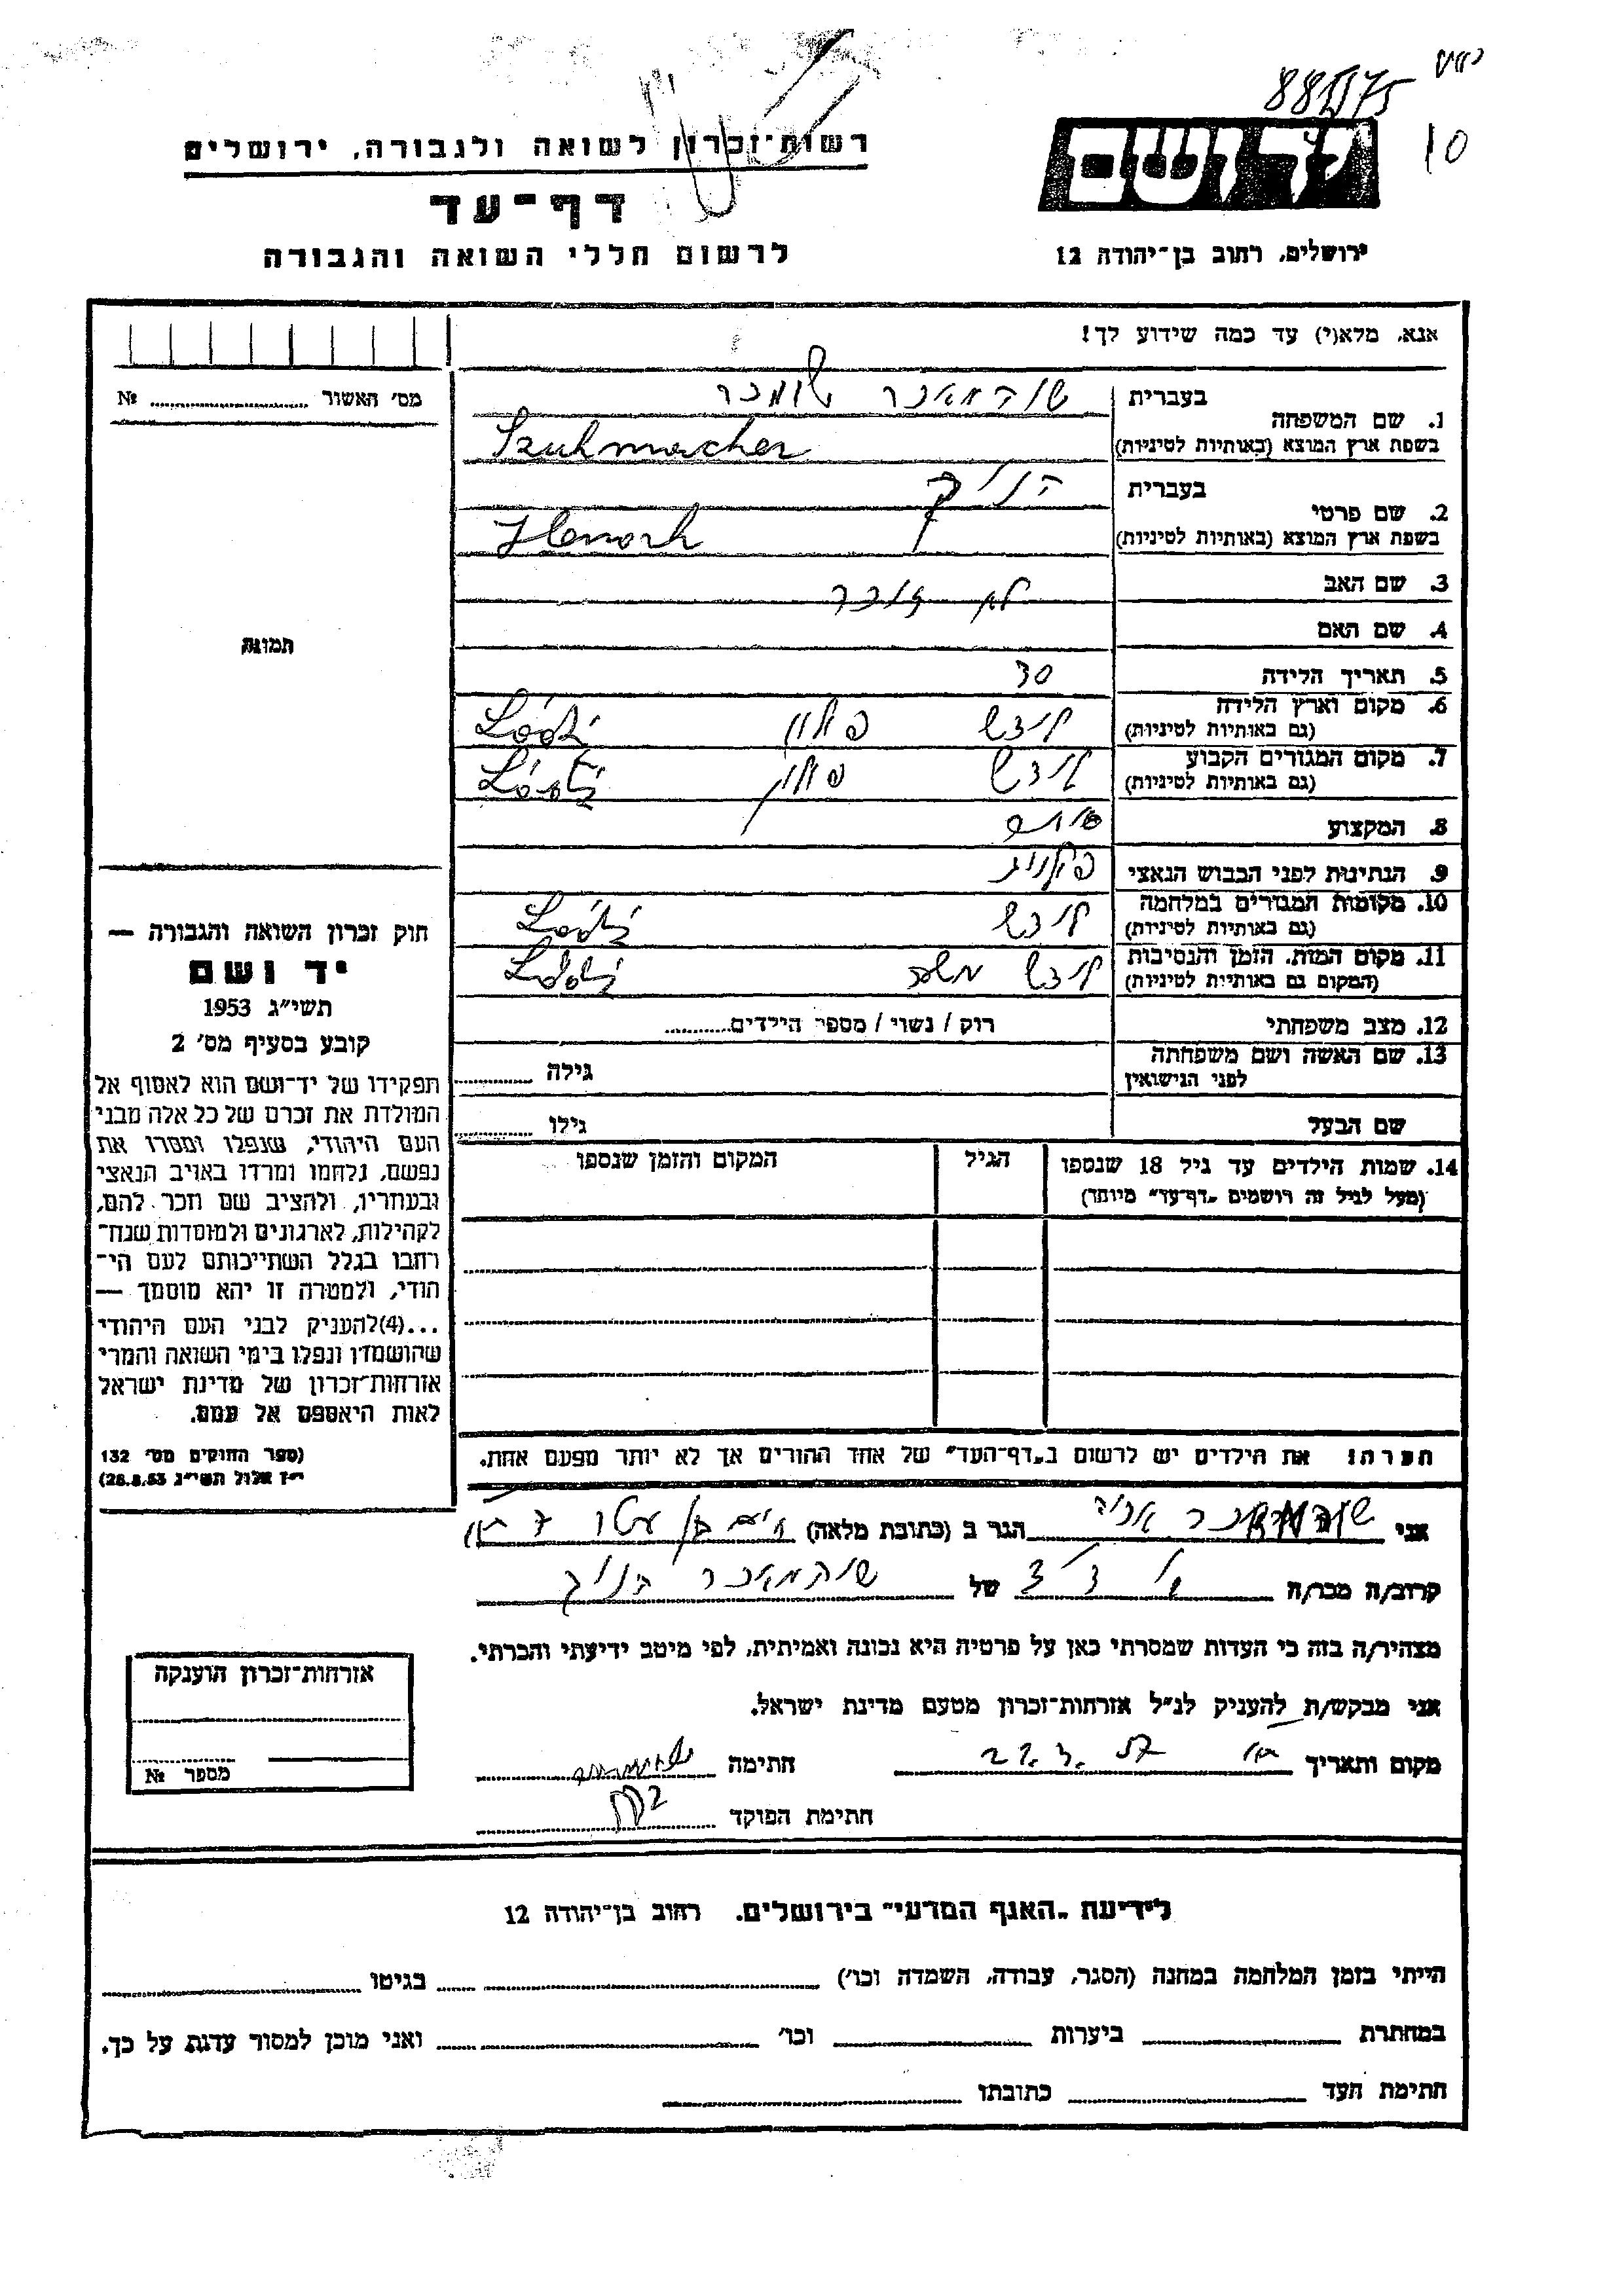 88575
10
יד ושם
רשות־זכרון לשואה ולגבורה, ירושלים
דף־עד
לרשום חללי השואה והגבורה
ירושלים, רחוב בן־יהודה 12
אנא, מלא(י) עד כמה שידוע לך!
מס׳ האשור № ........
1. שם המשפחה
בעברית שוהמאכר שומכר
בשפת ארץ המוצא (באותיות לטיניות) Szuhmacher
2. שם פרטי
בעברית הניך
בשפת ארץ המוצא (באותיות לטיניות) Henoch
3. שם האב לא זוכר
4. שם האם
תמונות
5. תאריך הלידה 30
6. מקום וארץ הלידה
(גם באותיות לטיניות) לודש פולין Łódź
7. מקום המגורים הקבוע
(גם באותיות לטיניות) לודש פולין Łódź
8. המקצוע
9. הנתינות לפני הכבוש הנאצי
10. מקומות המגורים במלחמה
(גם באותיות לטיניות) לודש Łódź
11. מקום המות, הזמן והנסיבות
(המקום גם באותיות לטיניות) לודש Łódź
12. מצב משפחתי רוק / נשוי / מספר הילדים..........
13. שם האשה ושם משפחתה
לפני הנישואין גילה ..........
שם הבעל גילו ..........
14. שמות הילדים עד גיל 18 שנספו
(מעל לגיל זה רושמים „דף־עד״ מיוחד)
הגיל
המקום והזמן שנספו
חוק זכרון השואה והגבורה —
יד ושם
תשי״ג 1953
קובע בסעיף מס׳ 2
תפקידו של יד־ושם הוא לאסוף אל
המולדת את זכרם של כל אלה מבני
העם היהודי, שנפלו ומסרו את
נפשם, נלחמו ומרדו באויב הנאצי
ובעוזריו, ולהציב שם וזכר להם,
לקהילות, לארגונים ולמוסדות שנח־
רבו בגלל השתייכותם לעם הי־
הודי, ולמטרה זו יהא מוסמך —
...(4)להעניק לבני העם היהודי
שהושמדו ונפלו בימי השואה והמרי
אזרחות־זכרון של מדינת ישראל
לאות היאספם אל עמם.
(ספר החוקים מס׳ 132
י״ז אלול תשי״ג 28.8.53)
הערה: את הילדים יש לרשום ב„דף־העד״ של אחד ההורים אך לא יותר מפעם אחת.
אני הגר ב (כתובת מלאה)
קרוב/ה מכר/ה של שוהמאכר הניך
מצהיר/ה בזה כי העדות שמסרתי כאן על פרטיה היא נכונה ואמיתית, לפי מיטב ידיעתי והכרתי.
אני מבקש/ת להעניק לנ״ל אזרחות־זכרון מטעם מדינת ישראל.
מקום ותאריך חתימה
חתימת הפוקד
אזרחות־זכרון הוענקה
מספר №
לידיעת „האגף המדעי״ בירושלים, רחוב בן־יהודה 12
הייתי בזמן המלחמה במחנה (הסגר, עבודה, השמדה וכו׳) בגיטו
במחתרת ביערות וכו׳ ואני מוכן למסור עדות על כך.
חתימת העד כתובתו